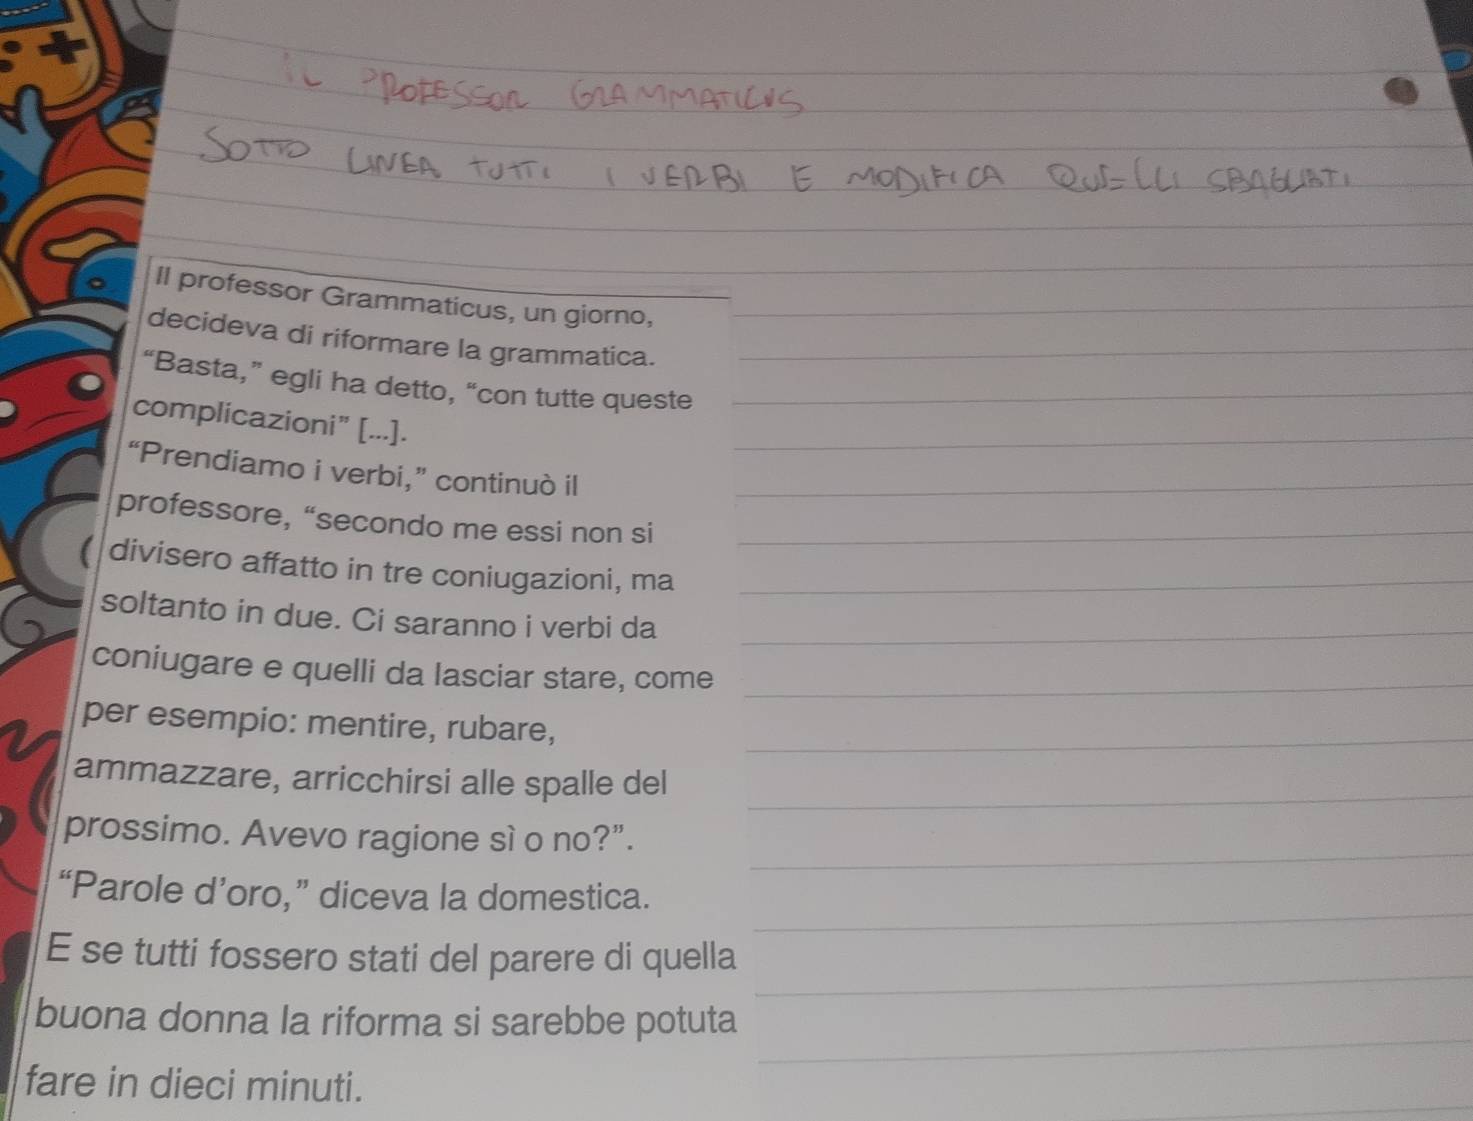 iL PROFESSOR GRAMMATICUS
SOTTO LINEA TUTTI I VERBI E MODIFICA QUELLI SBAGLIATI
Il professor Grammaticus, un giorno,
decideva di riformare la grammatica.
“Basta,” egli ha detto, “con tutte queste
complicazioni” [...].
“Prendiamo i verbi,” continuò il
professore, “secondo me essi non si
divisero affatto in tre coniugazioni, ma
soltanto in due. Ci saranno i verbi da
coniugare e quelli da lasciar stare, come
per esempio: mentire, rubare,
ammazzare, arricchirsi alle spalle del
prossimo. Avevo ragione sì o no?”.
“Parole d’oro,” diceva la domestica.
E se tutti fossero stati del parere di quella
buona donna la riforma si sarebbe potuta
fare in dieci minuti.